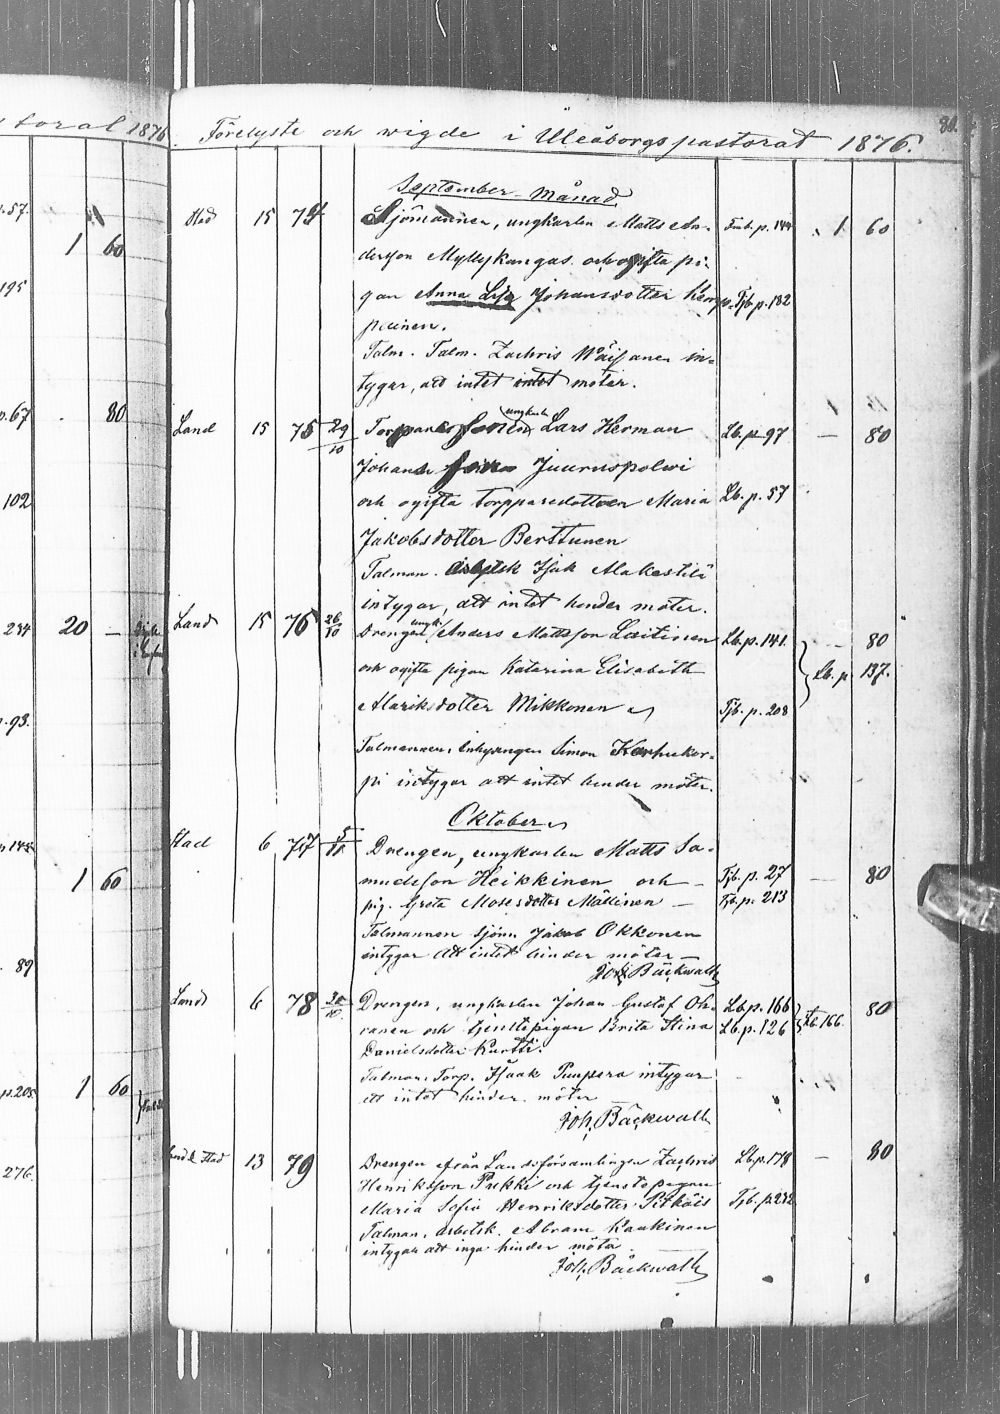 toral 1876
p.57.
1 60
195
p.67 80
102
234 20 —
p.93.
p.148
1 60
89
p.205 1 60
276.
Förelyste och wigde i Uleåborgs pastorat 1876.
September månad
Stad 15 74 Sjömannen, ungkarlen Matts An- p. 144 1 60
dersson Myllykangas och ogifta pi-
gan Anna Lisa Johansdotter Kemp- Tjb. p. 182
painen.
Talm. Talm. Zachris Wäisänen in-
tygar, att intet intet möter.
Land 15 75 29/10 Torpare sonen ungkarlen Lars Herman Lb. p. 97 — 80
Johans Juuruspolwi
och ogifta torpparedottren Maria Lb. p. 57
Jakobsdotter Berttunen
Talman. Arbetsk Isak Alakestilä
intygar, att intet hinder möter.
Land 15 76 26/10 Drengen ungk. Anders Mattsson Laitinen Lb. p. 141. — 80
och ogifta pigan Katarina Elisabeth Lb. p. 137.
Mariksdotter Mikkonen Tjb. p. 208
Talmannen, Inhysingen Simon Karhukor-
pi intygar att intet hinder möter.
Oktober
Stad 6 77 5/11 Drengen, ungkarlen Matts Sa-
muelsson Heikkinen och — Tjb. p. 27 — 80
pig. Greta Mosesdotter Määttinen — Tjb. p. 213
Talmannen sjöm. Jakob Okkonen
intygar att intet hinder möter —
Joh. Bäckwall
Land 6 78 Drengen, ungkarlen Johan Gustaf Oh- Lb. p. 166 Lb. 166. 80
ranen och tjenstepigan Brita Stina Lb. p. 126
Danielsdotter Kurtti.
Talman, Torp. Isaak Pimpera intygar
att intet hinder möter
Joh. Bäckwall
Land & Stad 13 79 Drengen från Landsförsamlingen Zachris Lb. p. 178 — 80
Henriksson Pukki och tjenstepigan
Maria Sofia Henriksdotter Pitkäis Tjb. p. 242
Talman, arbetsk. Abram Kaakinen
intygar att inga hinder möta
Joh. Bäckwall